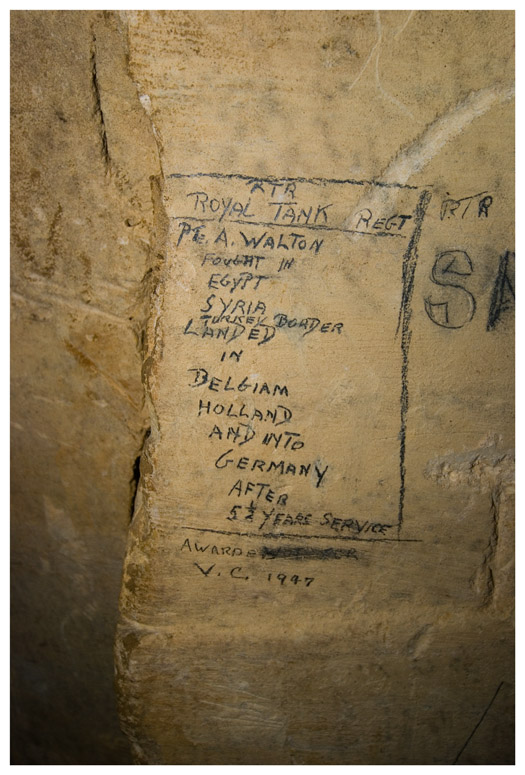 RTR
ROYAL TANK REGT
PTE. A. WALTON
FOUGHT IN
EGYPT
SYRIA
TURKEY BOARDER
LANDED
IN
BELGIAM
HOLLAND
AND INTO
GERMANY
AFTER
5½ YEARS SERVICE
AWARDED
V.C. 1947
RTR